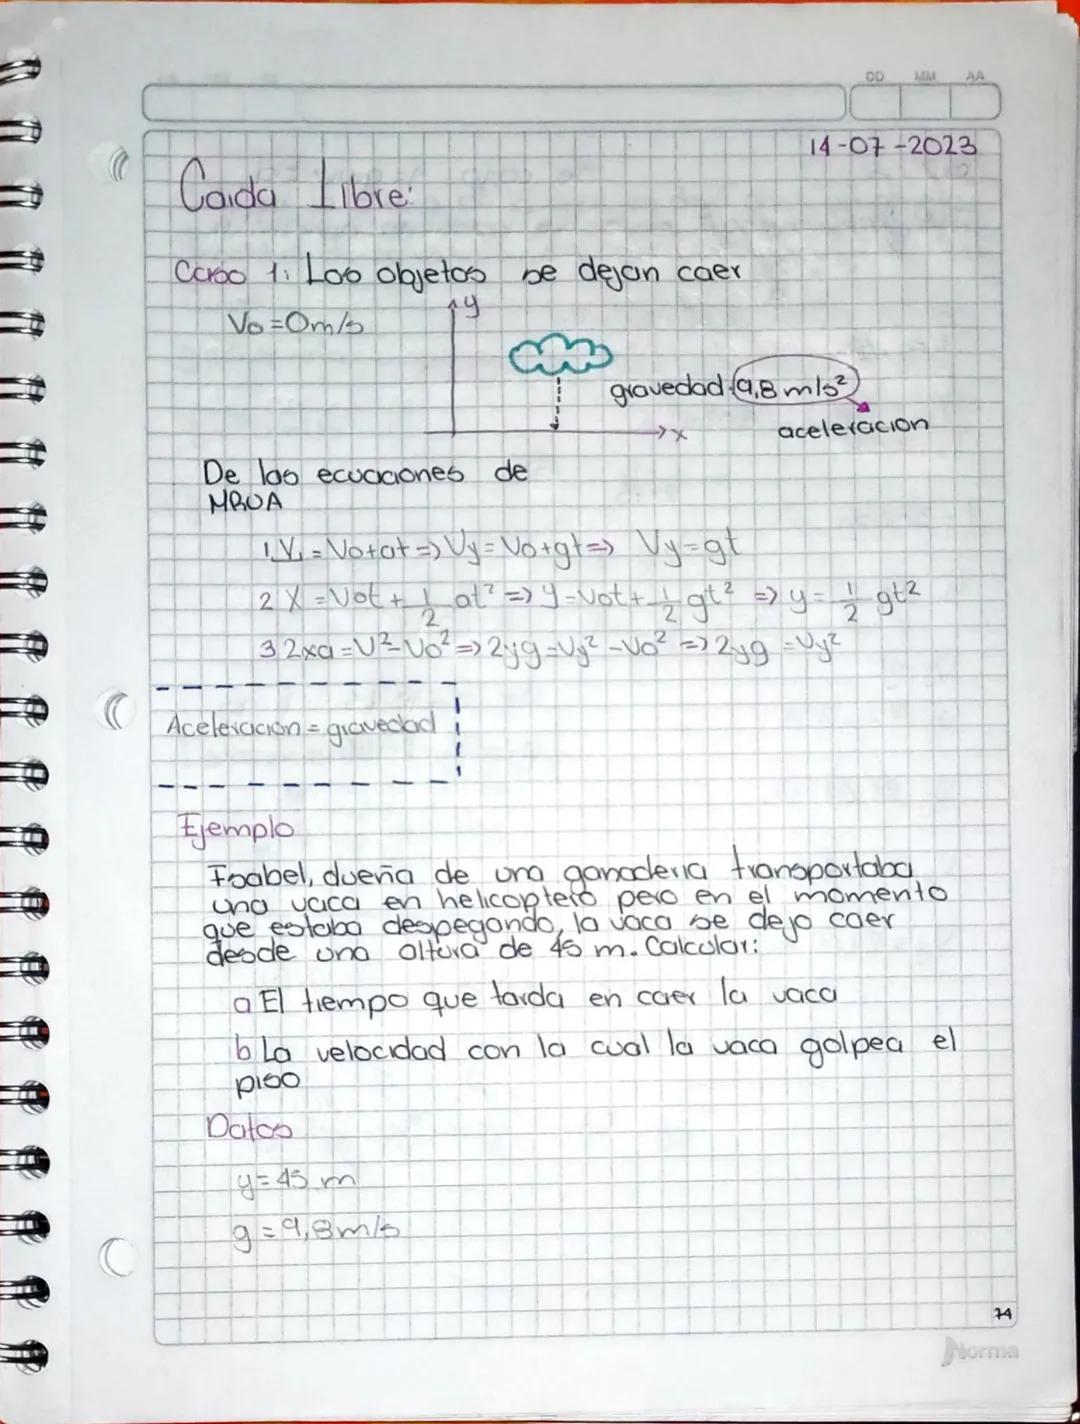 DD MM AA
14-07-2023
Caida Libre:
Caso 1: Los objetos se dejan caer
Vo=0m/s
y
gravedad 9,8 m/s²
x
aceleracion
De las ecuaciones de
MRUA
1. V₁ = Vo+at => Vy=Vo+gt => Vy=gt
2 X = Vot + 1/2 at² => y=Vot+ 1/2 gt² => y= 1/2 gt²
3 2xa = V²-Vo² => 2yg=Vy²-Vo² => 2yg =Vy²
Aceleracion = gravedad
Ejemplo
Isabel, dueña de una ganaderia transportaba
una vaca en helicoptero pero en el momento
que estaba despegando, la vaca se dejo caer
desde una altura de 45 m. Calcular:
a El tiempo que tarda en caer la vaca
b La velocidad con la cual la vaca golpea el
piso
Datos
y=45 m
g=9,8m/s
74
Norma